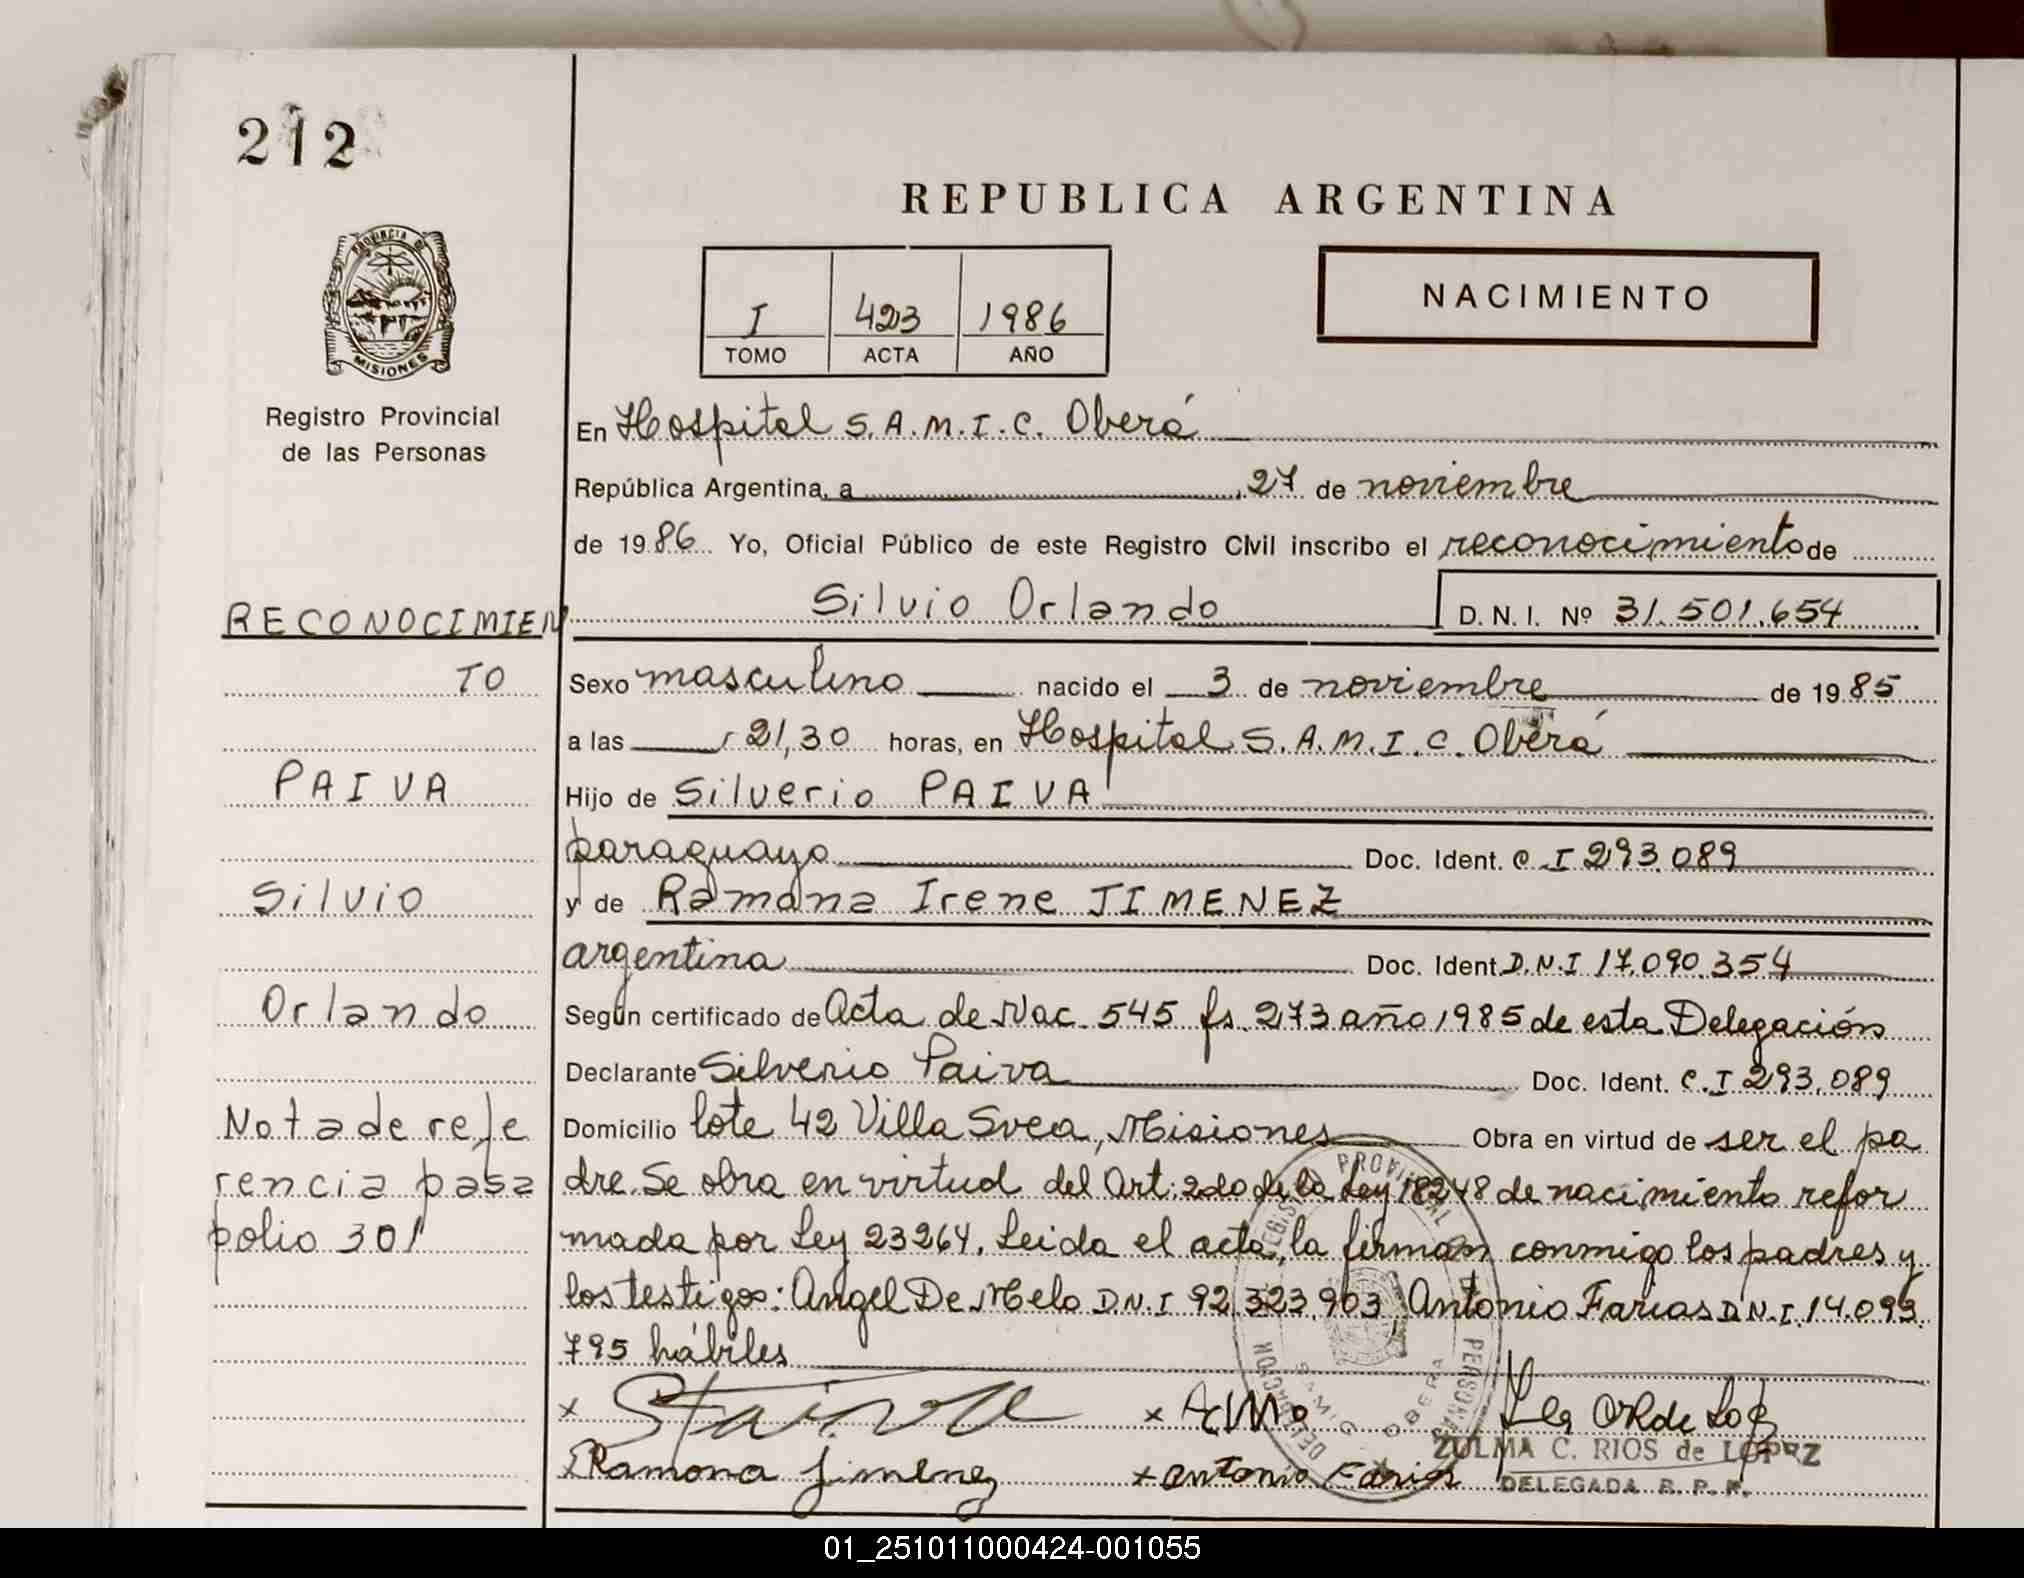 212
REPUBLICA ARGENTINA
PROVINCIA DE
MISIONES
Registro Provincial
de las Personas
I 423 1986
TOMO ACTA AÑO
NACIMIENTO
En Hospital S.A.M.I.C. Oberá
República Argentina, a 27 de noviembre
de 1986 Yo, Oficial Público de este Registro Civil inscribo el reconocimiento de
Silvio Orlando D.N.I. Nº 31.501.654
RECONOCIMIEN
TO
Sexo masculino nacido el 3 de noviembre de 1985
a las 21,30 horas, en Hospital S.A.M.I.C. Oberá
PAIVA
Hijo de Silverio PAIVA
paraguayo Doc. Ident. C.I 293.089
Silvio
y de Ramona Irene JIMENEZ
argentina Doc. Ident. D.N.I 17.090.354
Orlando
Según certificado de Acta de Nac. 545 fs. 273 año 1985 de esta Delegación
Declarante Silverio Paiva Doc. Ident. C.I 293.089
Nota de refe
rencia pasa
polio 301
Domicilio lote 42 Villa Svea, Misiones Obra en virtud de ser el pa
dre. Se obra en virtud del Art. 2do de la Ley 18248 de nacimiento refor
mada por Ley 23264. Leida el acta, la firman conmigo los padres y
los testigos: Angel De Melo D.N.I 92.323.903, Antonio Farias D.N.I. 14.093.
795 hábiles
REGISTRO PROVINCIAL DE PERSONAS
DELEGACION
S.A.M.I.C. OBERA
x SPaiva x
x Ramona Jimenez x Antonio Farias
ZULMA C. RIOS de LOPEZ
DELEGADA R. P. P.
01_251011000424-001055